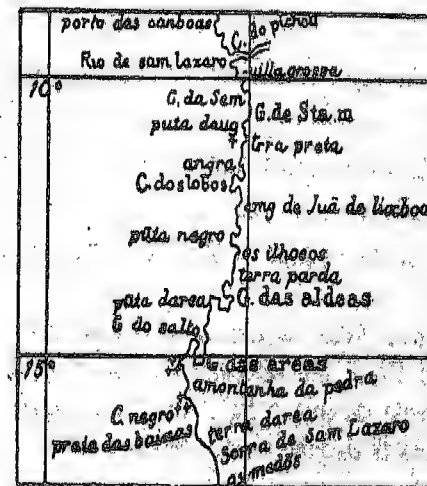 porto das sanboas
C. do pichel
Rio de sam Lazaro
uilla grossa
10°
C. da Sem
G. de Sta m
puta daug
trra preta
angra
C. dos lobos
emg de Juã de lixboa
pūta negro
os ilhocos
terra parda
puta darea
G. das aldeas
G do salto
15°
G. das areas
amontanha da pedra
C. negro
terra darea
praia das baixas
Serra de sam Lazaro
as medõs